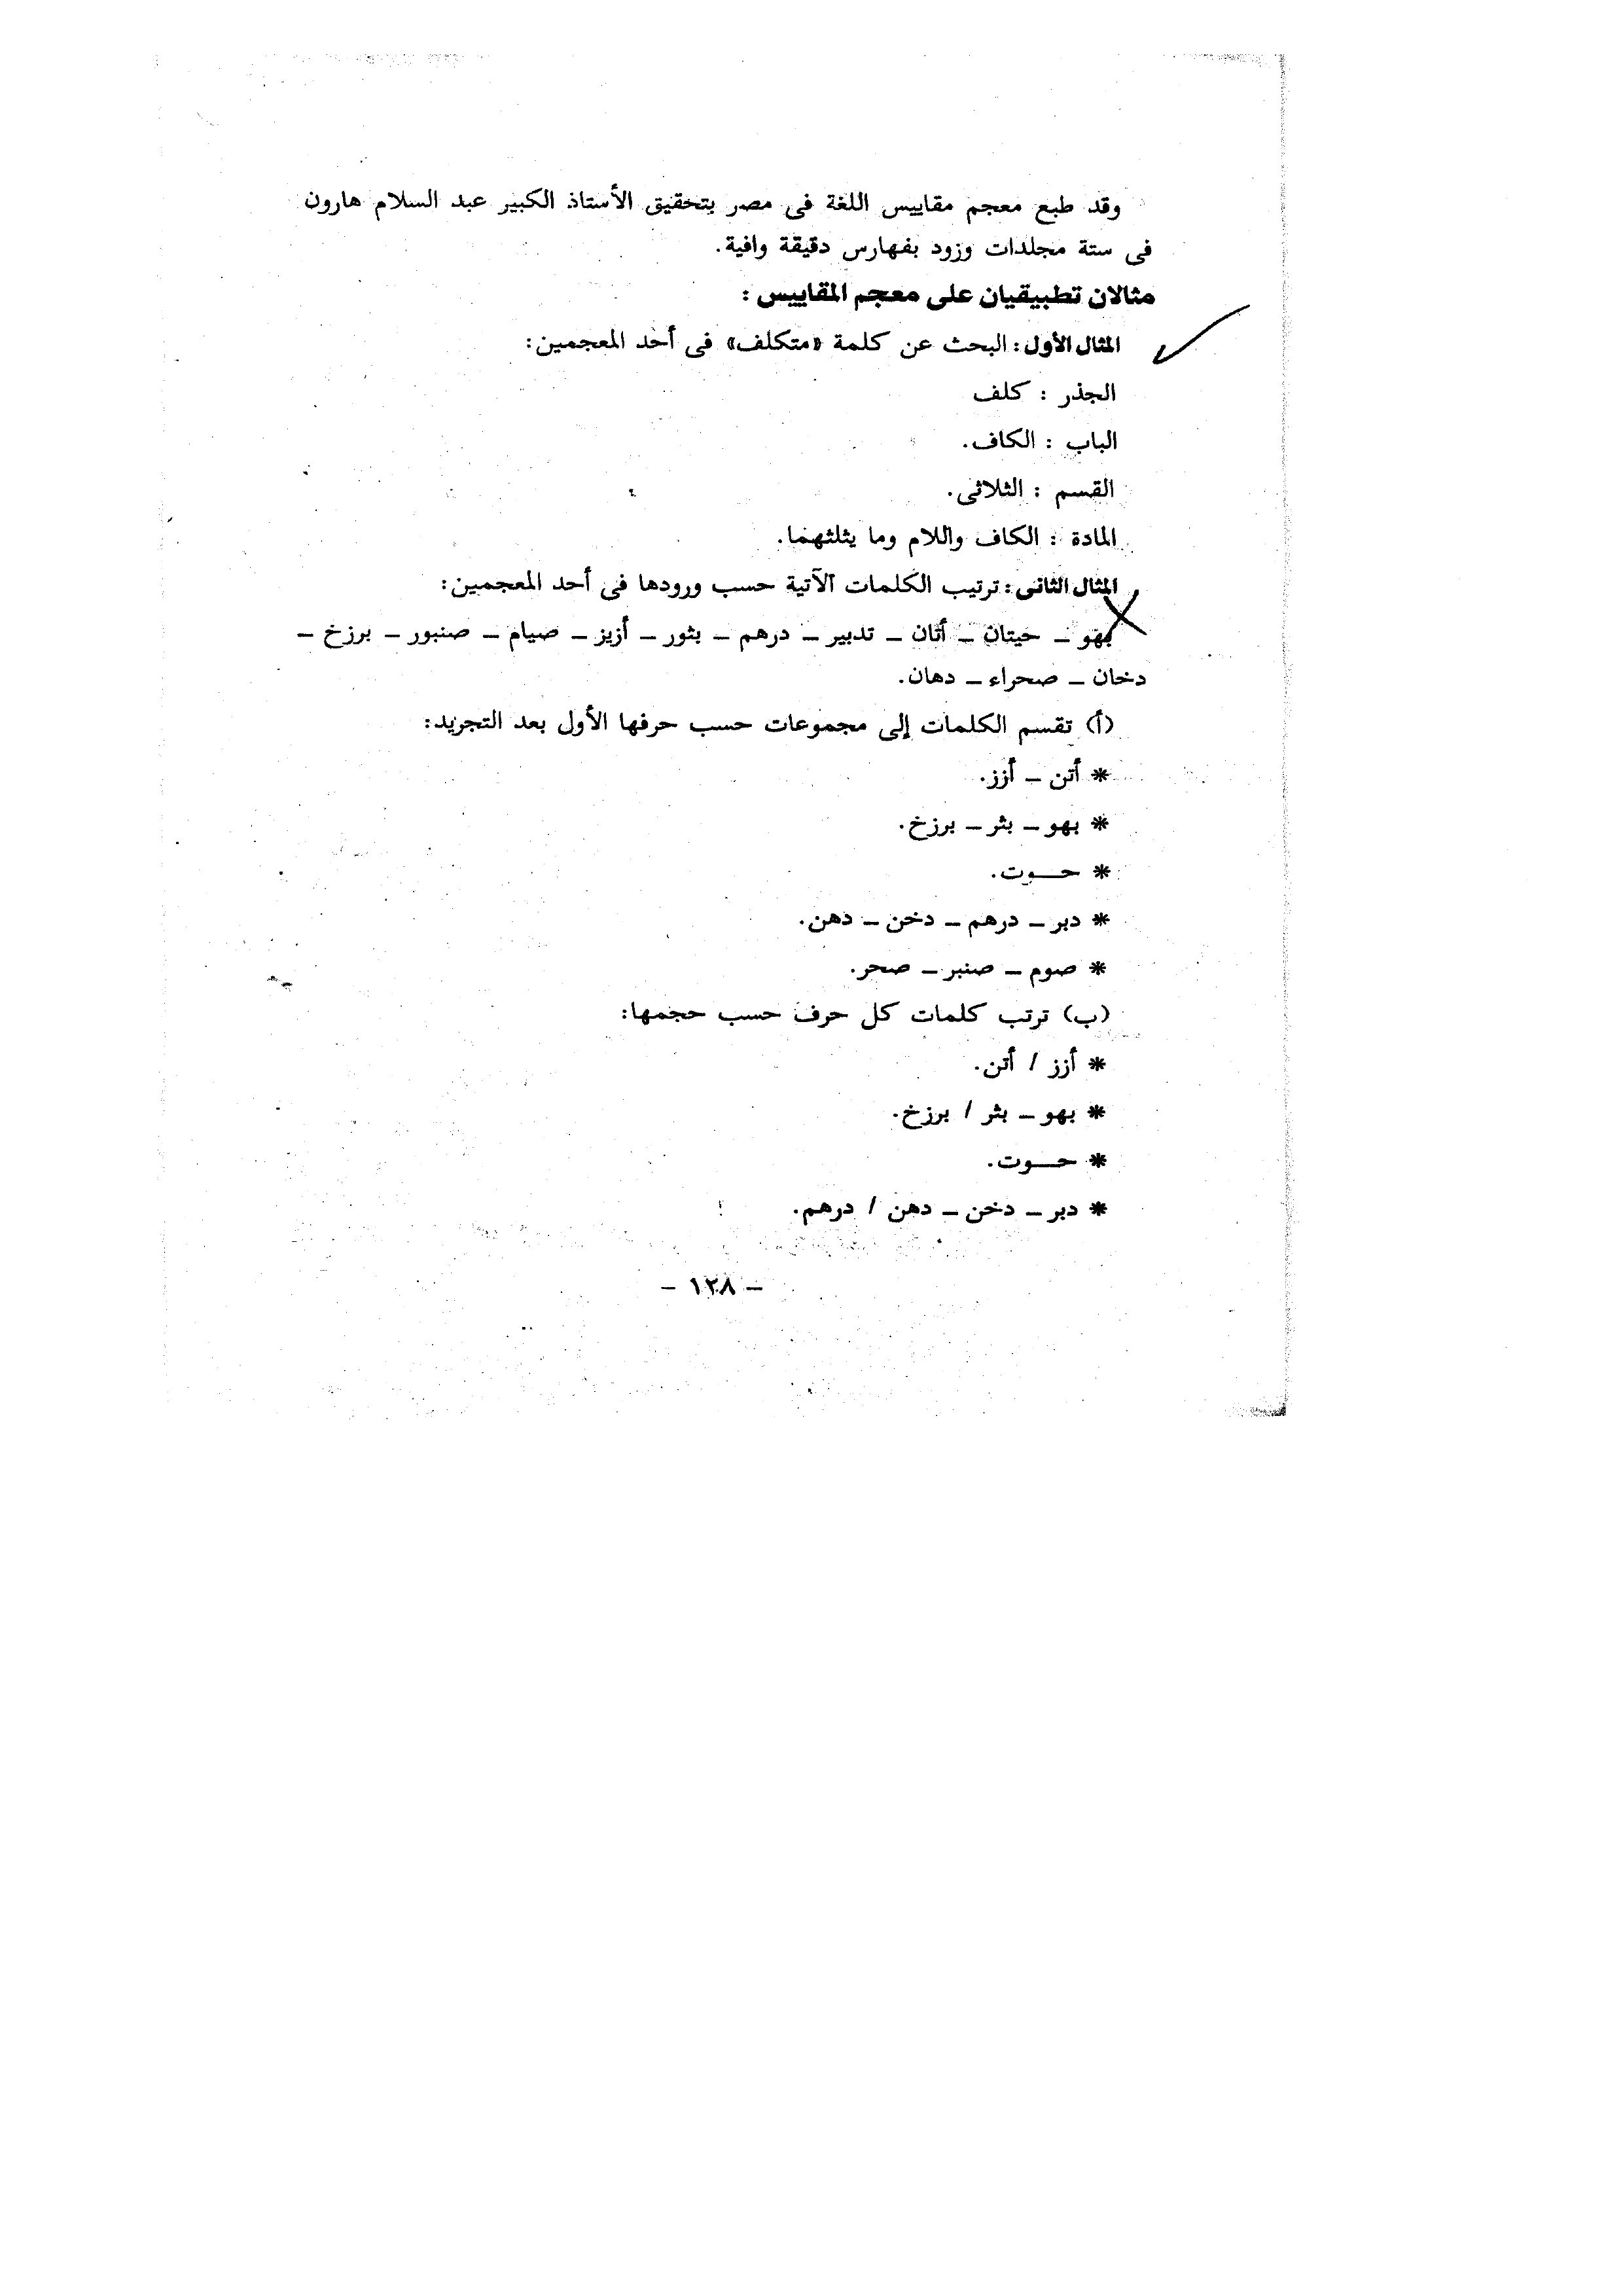 وقد طبع معجم مقاييس اللغة فى مصر بتحقيق الأستاذ الكبير عبد السلام هارون
فى ستة مجلدات وزود بفهارس دقيقة وافية.
مثالان تطبيقيان على معجم المقاييس :
المثال الأول : البحث عن كلمة «متكلف» فى أحد المعجمين:
الجذر : كلف
الباب : الكاف.
القسم : الثلاثى.
المادة : الكاف واللام وما يثلثهما.
المثال الثانى : ترتيب الكلمات الآتية حسب ورودها فى أحد المعجمين:
بهو ــ حيتان ــ أتان ــ تدبير ــ درهم ــ بثور ــ أزيز ــ صيام ــ صنبور ــ برزخ ــ
دخان ــ صحراء ــ دهان.
(أ) تقسم الكلمات إلى مجموعات حسب حرفها الأول بعد التجريد:
* أتن ــ أزز.
* بهو ــ بثر ــ برزخ.
* حـــوت.
* دبر ــ درهم ــ دخن ــ دهن.
* صوم ــ صنبر ــ صحر.
(ب) ترتب كلمات كل حرف حسب حجمها:
* أزز / أتن.
* بهو ــ بثر / برزخ.
* حـــوت.
* دبر ــ دخن ــ دهن / درهم.
– ١٢٨ –